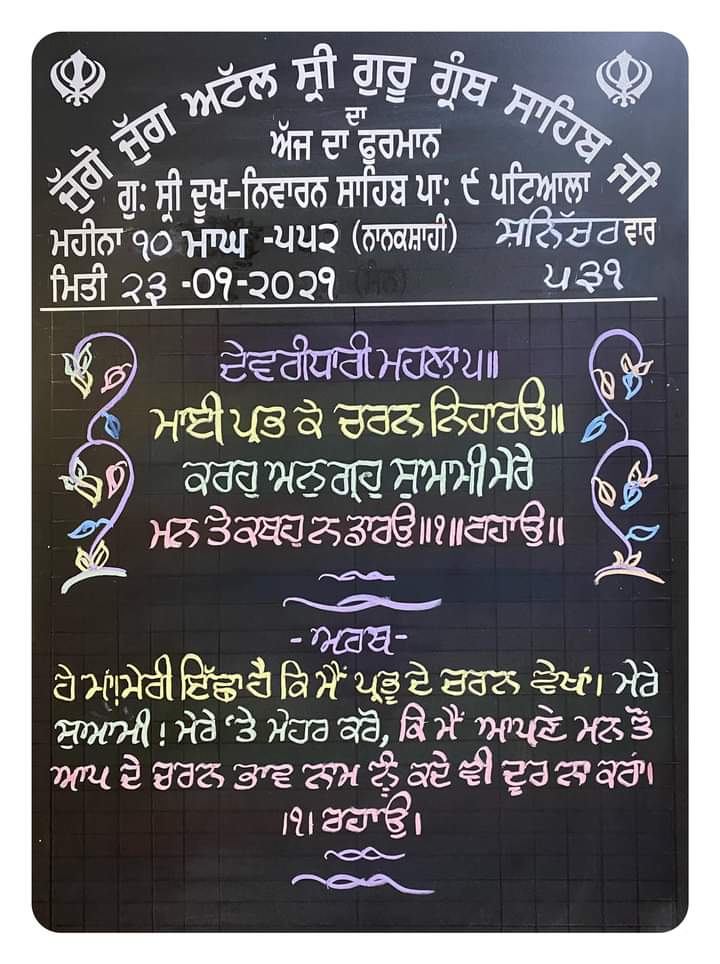 ਜੁੱਗੋ ਜੁੱਗ ਅਟੱਲ ਸ੍ਰੀ ਗੁਰੂ ਗ੍ਰੰਥ ਸਾਹਿਬ ਜੀ
ਦਾ
ਅੱਜ ਦਾ ਫੁਰਮਾਨ
ਗੁ: ਸ੍ਰੀ ਦੂਖ-ਨਿਵਾਰਨ ਸਾਹਿਬ ਪਾ: ੯ ਪਟਿਆਲਾ
ਮਹੀਨਾ ੧੦ ਮਾਘ -੫੫੨ (ਨਾਨਕਸ਼ਾਹੀ) ਸ਼ਨਿੱਚਰ ਵਾਰ
ਮਿਤੀ ੨੩ -੦੧-੨੦੨੧ ੫੩੧
ਦੇਵਗੰਧਾਰੀ ਮਹਲਾ ੫॥
ਮਾਈ ਪ੍ਰਭ ਕੇ ਚਰਨ ਨਿਹਾਰਉ॥
ਕਰਹੁ ਅਨੁਗ੍ਰਹੁ ਸੁਆਮੀ ਮੇਰੇ
ਮਨ ਤੇ ਕਬਹੁ ਨ ਡਾਰਉ॥੧॥ਰਹਾਉ॥
-ਅਰਥ-
ਹੇ ਮਾਂ!ਮੇਰੀ ਇੱਛਾ ਹੈ ਕਿ ਮੈਂ ਪ੍ਰਭੂ ਦੇ ਚਰਨ ਵੇਖਾਂ। ਮੇਰੇ
ਸੁਆਮੀ! ਮੇਰੇ 'ਤੇ ਮੇਹਰ ਕਰੋ, ਕਿ ਮੈਂ ਆਪਣੇ ਮਨ ਤੋਂ
ਆਪ ਦੇ ਚਰਨ ਭਾਵ ਨਾਮ ਨੂੰ ਕਦੇ ਵੀ ਦੂਰ ਨਾ ਕਰਾਂ।
।੧। ਰਹਾਉ।